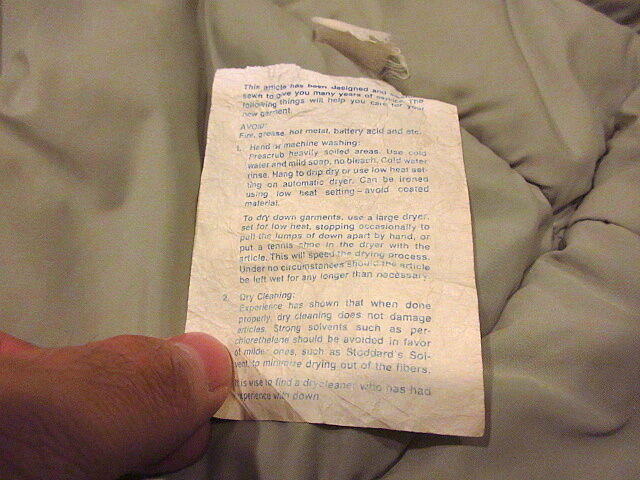 This article has been designed and
sewn to give you many years of service. The
following things will help you care for your
new garment.
AVOID:
Fire, grease, hot metal, battery acid and etc.
1. Hand or machine washing:
Prescrub heavily soiled areas. Use cold
water and mild soap, no bleach. Cold water
rinse. Hang to drip dry or use low heat set-
ting on automatic dryer. Can be ironed
using low heat setting—avoid coated
material.
To dry down garments, use a large dryer,
set for low heat, stopping occasionally to
pull the lumps of down apart by hand, or
put a tennis shoe in the dryer with the
article. This will speed the drying process.
Under no circumstances should the article
be left wet for any longer than necessary.
2. Dry Cleaning:
Experience has shown that when done
properly, dry cleaning does not damage
articles. Strong solvents such as per-
chlorethelene should be avoided in favor
of milder ones, such as Stoddard's Sol-
vent, to minimize drying out of the fibers.
It is wise to find a drycleaner who has had
experience with down